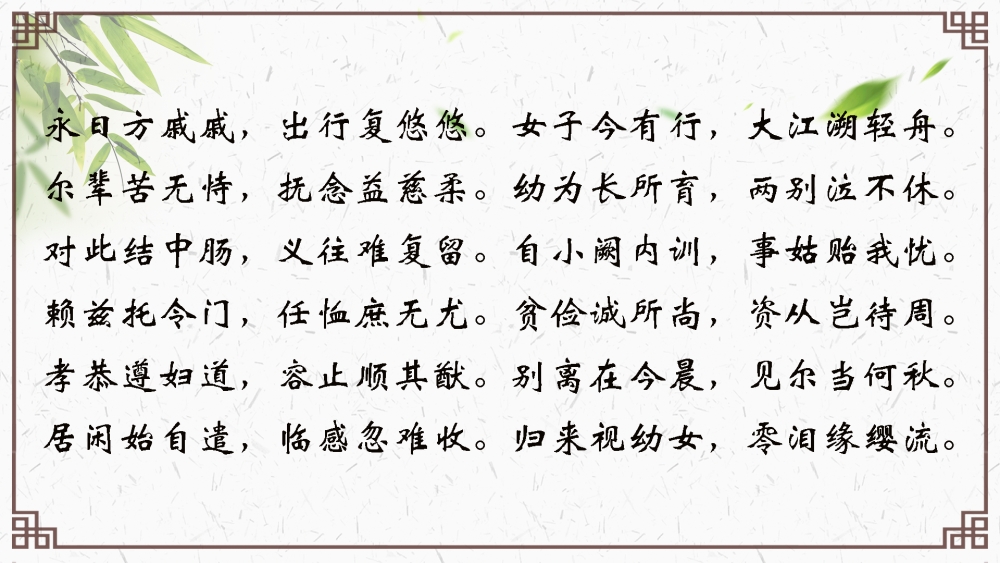 永日方戚戚，出行复悠悠。女子今有行，大江溯轻舟。
尔辈苦无恃，抚念益慈柔。幼为长所育，两别泣不休。
对此结中肠，义往难复留。自小阙内训，事姑贻我忧。
赖兹托令门，任恤庶无尤。贫俭诚所尚，资从岂待周。
孝恭遵妇道，容止顺其猷。别离在今晨，见尔当何秋。
居闲始自遣，临感忽难收。归来视幼女，零泪缘缨流。